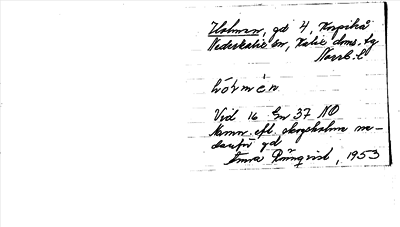 Holmen, gd 4, Korpikå
Nederkalix sn, Kalix doms. tg
Norrb. l.
hó̀rmén
Vid 16 Gm 37 NO
Namn efl. skogsholme ne-
danför gd
Rönnqvist, 1953